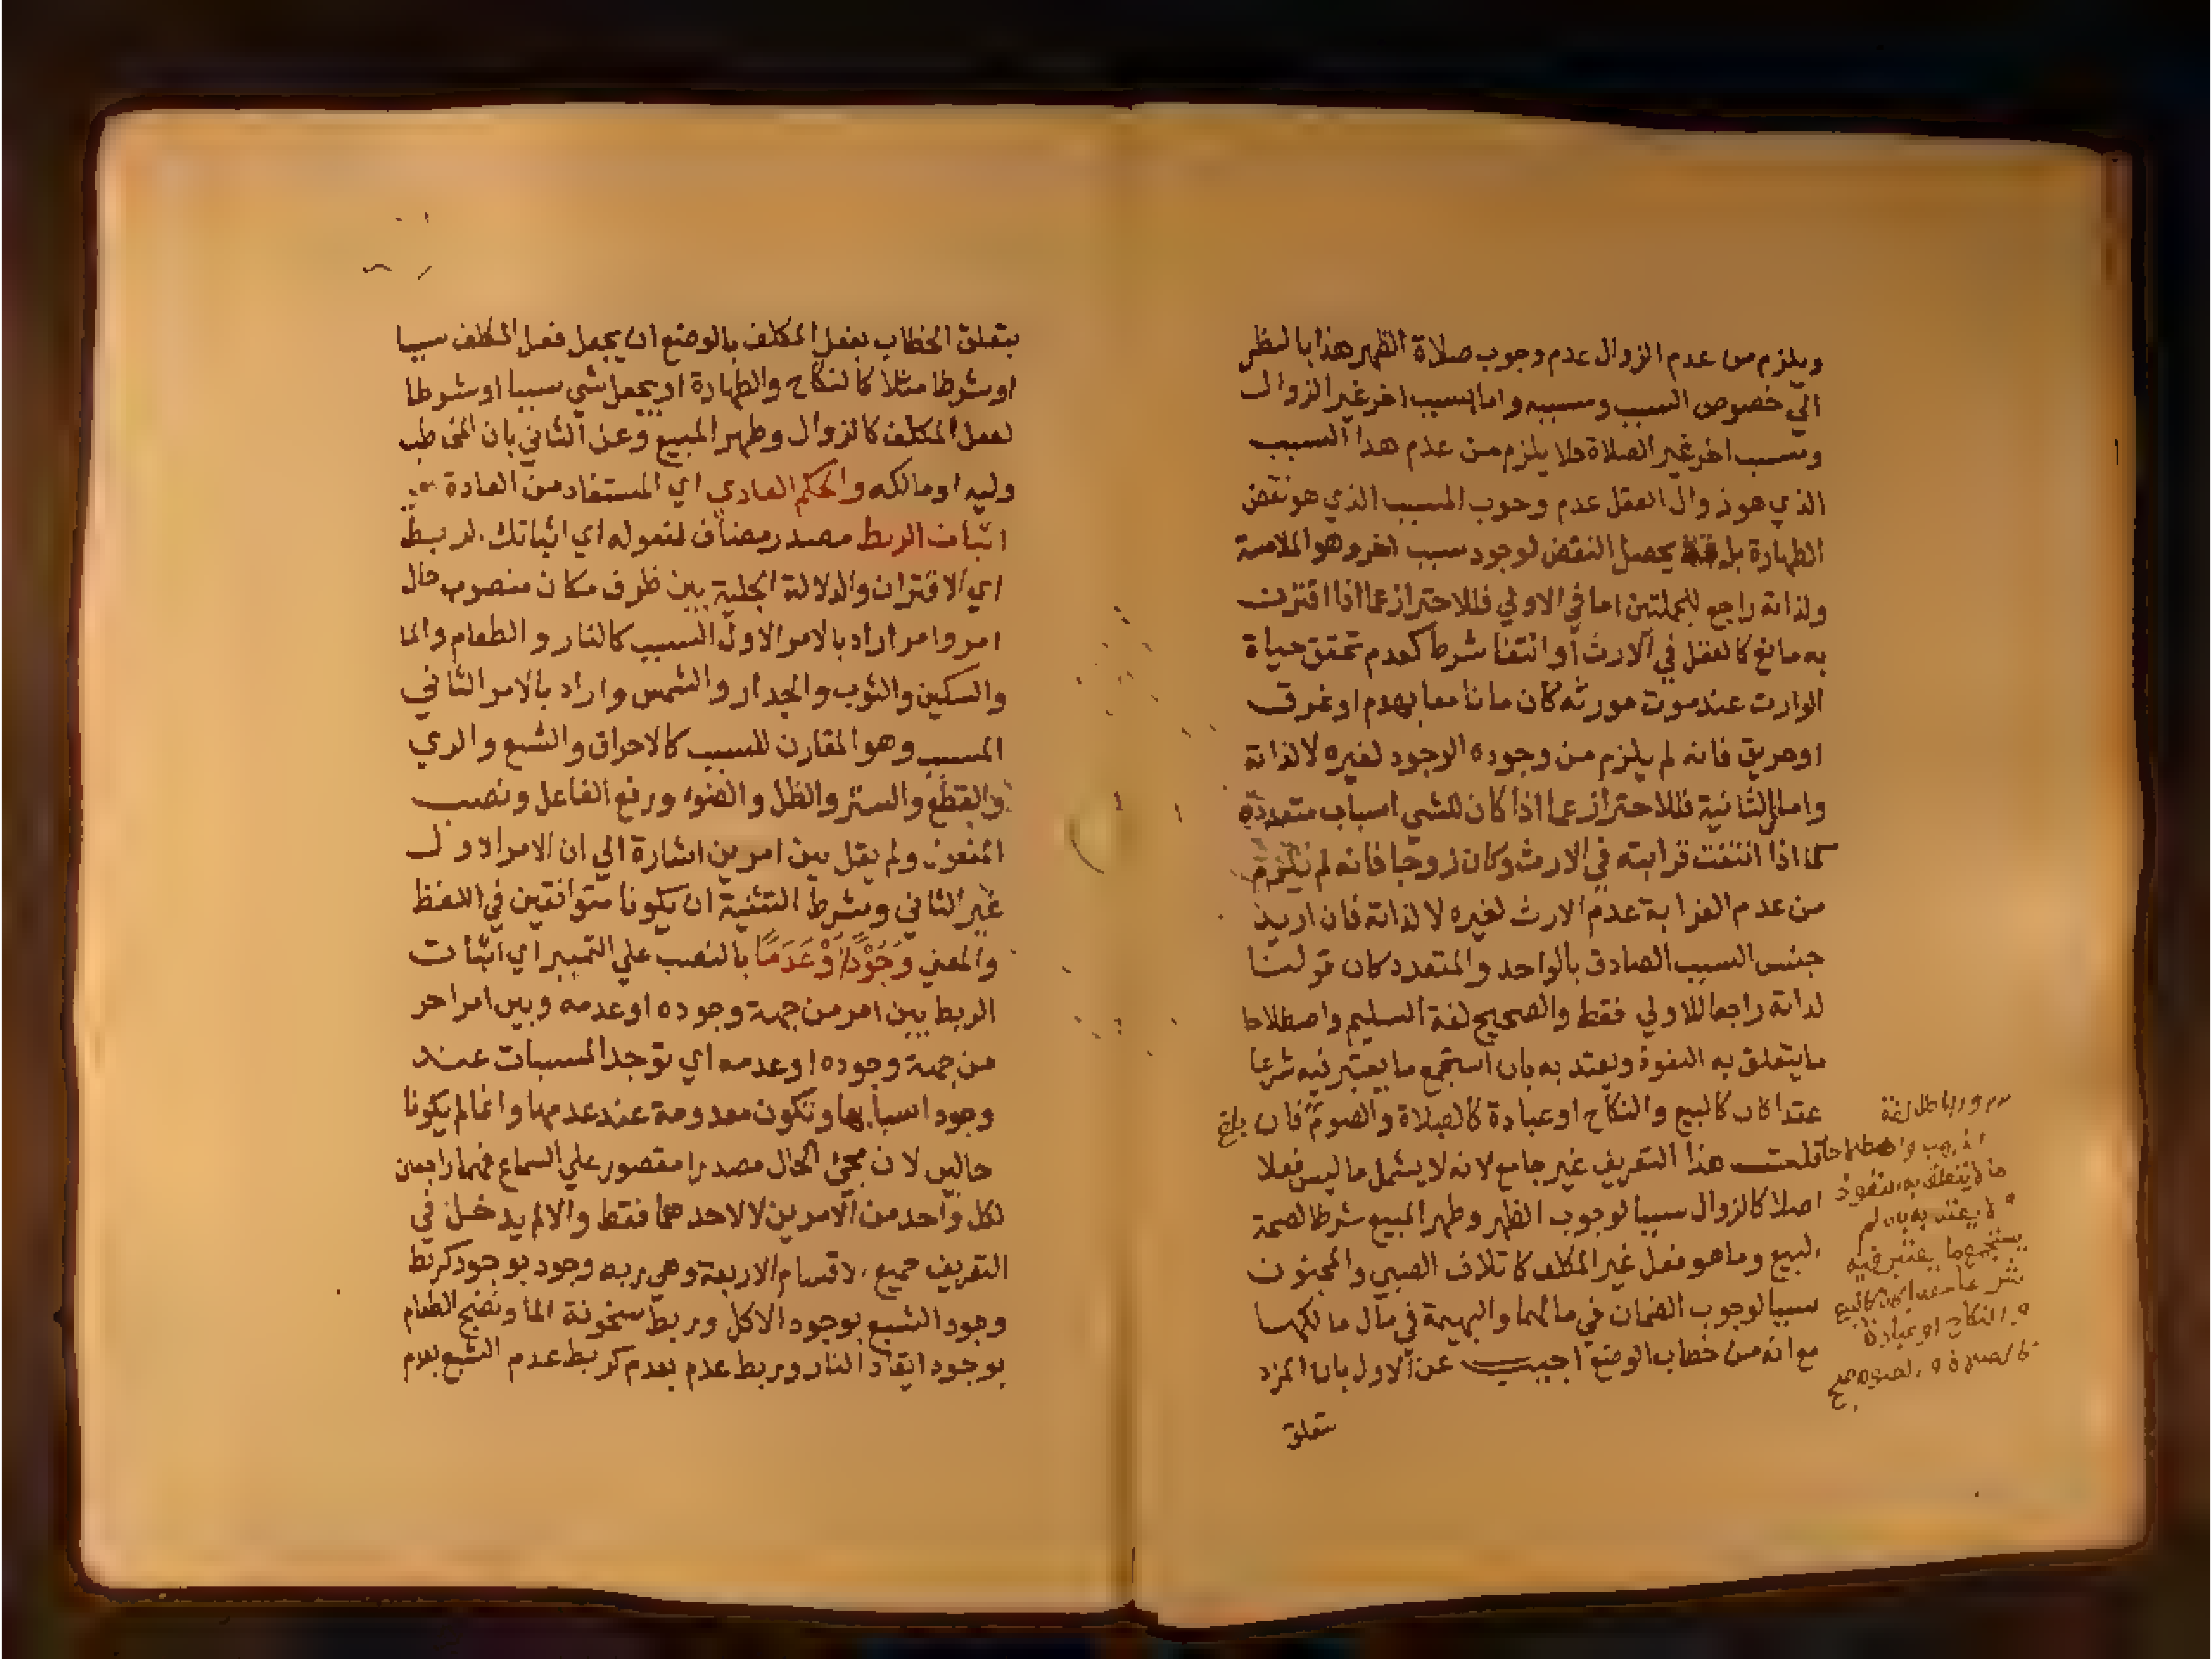 ويلزم من عدم الزوال عدم وجوب صلاة الظهر هذا بالنظر
الي خصوص السبب ومسببه واما لسبب اخر غير الزوال
ومسبب اخر غير الصلاة فلا يلزم من عدم هذا السبب
الذي هو زوال العقل عدم وجوب المسبب الذي هو نقض
الطهارة بل يحصل النقض لوجود سبب اخر وهو الملامسة
ولذاته راجع للجملتين اما في الاولي فللاحتراز عما اذا اقترن
به مانع كالقتل في الارث او انتفا شرط كعدم تحقق حياة
الوارث عند موت مورثه كان ماتا معا بهدم او غرق
او حريق فانه لم يلزم من وجوده الوجود لغيره لا لذاته
واما الثانية فللاحتراز عما اذا كان للشي اسباب متعددة
كما اذا انتفت قرابته في الارث وكان زوجا فانه لم يلزم
من عدم القرابة عدم الارث لغيره لا لذاته فان اريد
جنس السبب الصادق بالواحد والمتعدد كان قولنا
لذاته راجعا للاولي فقط والصحيح لغة السليم واصطلاحا
ما يتعلق به النفوذ ويعتد به بان استجمع ما يعتبر فيه شرعا
عقدا كان كالبيع والنكاح او عبادة كالصلاة والصوم فان
قلت هذا التعريف غير جامع لانه لا يشمل ما ليس فعلا
اصلا كالزوال سببا لوجوب الظهر وطهر المبيع شرطا لصحة
البيع وما هو فعل غير المكلف كاتلاف الصبي والمجنون
سببا لوجوب الضمان في مالهما والبهيمة في مال مالكها
مع انه من خطاب الوضع اجيب عن الاول بان المراد
يتعلق
بلغ
والباطل لغة
الذهب واصطلاحا
ما لا يتعلق به النفوذ
ولا يعتد به بان لم
يستجمع ما يعتبر فيه
شرعا عقدا كان كالبيع
والنكاح او عبادة
كالصلاة والصوم صح
بتعلق الخطاب بفعل المكلف بالوضع ان يجعل فعل المكلف سببا
او شرطا مثلا كالنكاح والطهارة او يجعل شي سببا او شرطا
لفعل المكلف كالزوال وطهر المبيع وعن الثاني بان المخاطب
وليه او مالكه والحكم العادي اي المستفاد من العادة
اثبات الربط مصدر مضاف لمفعوله اي اثباتك الربط
اي الاقتران والدلالة الجلية بين ظرف مكان منصوب حال
امر وامر اراد بالامر الاول السبب كالنار والطعام والما
والسكين والثوب والجدار والشمس واراد بالامر الثاني
المسبب وهو المقارن للسبب كالاحراق والشبع والري
والقطع والستر والظل والضوء ورفع الفاعل ونصب
المفعول ولم يقل بين امرين اشارة الي ان الامر الاول
غير الثاني وشرط التثنية ان يكونا متوافقين في اللفظ
والمعني وجودا وعدما بالنصب علي التمييز اي اثبات
الربط بين امر من جهة وجوده او عدمه وبين امر اخر
من جهة وجوده او عدمه اي توجد المسببات عند
وجود اسبابها وتكون معدومة عند عدمها وانما لم يكونا
حالين لان مجئ الحال مصدرا مقصور علي السماع فهما راجعان
لكل واحد من الامرين لا لاحدهما فقط والا لم يدخل في
التعريف جميع الاقسام الاربعة وهي ربط وجود بوجود كربط
وجود الشبع بوجود الاكل وربط سخونة الما ونضج الطعام
بوجود ايقاد النار وربط عدم بعدم كربط عدم الشبع بعدم